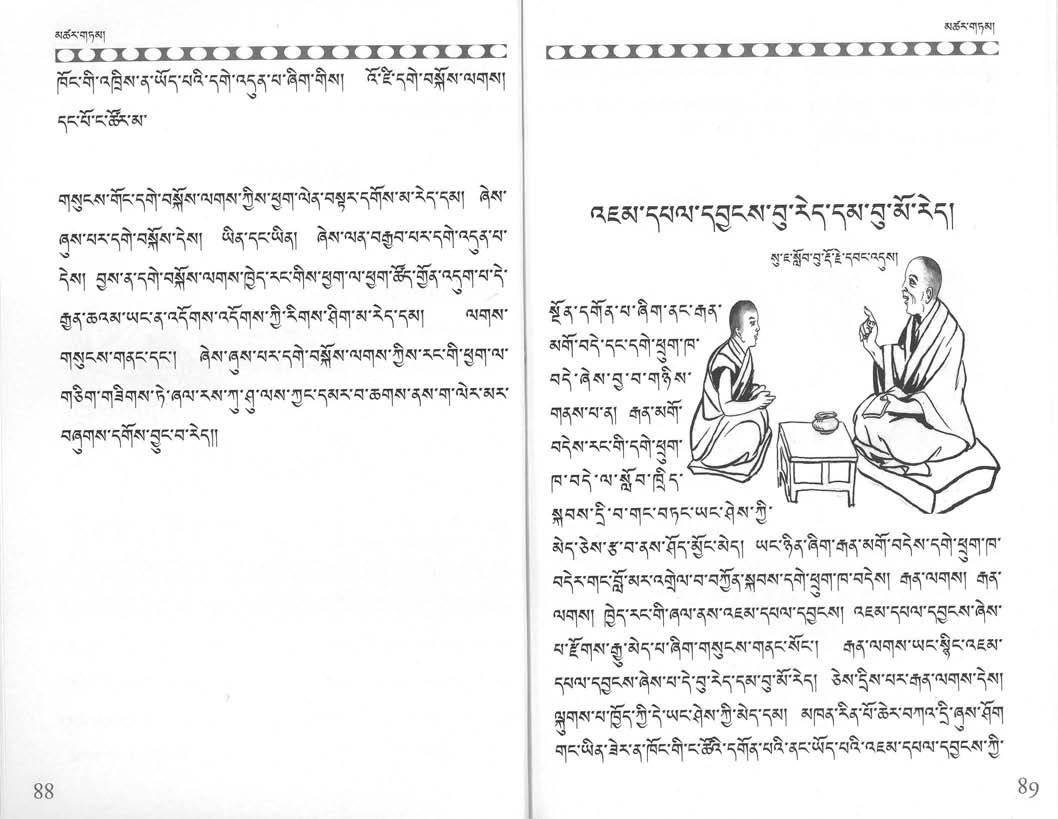 མཚར་གཏམ།
ཁོང་གི་འཁྲིས་ན་ཡོད་པའི་དགེ་འདུན་པ་ཞིག་གིས།    འོ་ཛི་དགེ་བསྐོས་ལགས།
དང་པོ་ང་ཚོར་མ་
གསུངས་གོང་དགེ་བསྐོས་ལགས་ཀྱིས་ཕྱག་ལེན་བསྟར་དགོས་མ་རེད་དམ།   ཞེས་
ཞུས་པར་དགེ་བསྐོས་དེས།    ཡིན་དང་ཡིན།    ཞེས་ལན་བརྒྱབ་པར་དགེ་འདུན་པ་
དེས།  བྱས་ན་དགེ་བསྐོས་ལགས་ཁྱེད་རང་གིས་ཕྱག་ལ་ཕྱག་ཚོད་གྱོན་འདུག་པ་དེ་
རྒྱན་ཆའམ་ཡང་ན་འདོགས་འདོགས་ཀྱི་རིགས་ཤིག་མ་རེད་དམ།        ལགས་
གསུངས་གནང་དང་།    ཞེས་ཞུས་པར་དགེ་བསྐོས་ལགས་ཀྱིས་རང་གི་ཕྱག་ལ་
གཅིག་གཟིགས་ཏེ་ཞལ་རས་ཀུ་ཤུ་ལས་ཀྱང་དམར་བ་ཆགས་ནས་ག་ལེར་མར་
བཞུགས་དགོས་བྱུང་བ་རེད།།
88
མཚར་གཏམ།
འཇམ་དཔལ་དབྱངས་བུ་རེད་དམ་བུ་མོ་རེད།
སུ་ཇ་སློབ་བུ་རྡོ་རྗེ་དབང་འདུས།
སྔོན་དགོན་པ་ཞིག་ནང་རྒན་
མགོ་བདེ་དང་དགེ་ཕྲུག་ཁ་
བདེ་ཞེས་བྱ་བ་གཉིས་
གནས་པ་ན།  རྒན་མགོ་
བདེས་རང་གི་དགེ་ཕྲུག་
ཁ་བདེ་ལ་སློབ་ཁྲིད་
སྐབས་དྲི་བ་གང་བཏང་ཡང་ཤེས་ཀྱི་
མེད་ཅེས་རྩ་བ་ནས་ཤོད་མྱོང་མེད།  ཡང་ཉིན་ཞིག་རྒན་མགོ་བདེས་དགེ་ཕྲུག་ཁ་
བདེར་གང་བློ་མར་འགྲེལ་བ་བཀྱོན་སྐབས་དགེ་ཕྲུག་ཁ་བདེས།  རྒན་ལགས།  རྒན་
ལགས།  ཁྱེད་རང་གི་ཞལ་ནས་འཇམ་དཔལ་དབྱངས།  འཇམ་དཔལ་དབྱངས་ཞེས་
པ་རྫོགས་རྒྱུ་མེད་པ་ཞིག་གསུངས་གནང་སོང་།    རྒན་ལགས་ཡང་སྙིང་འཇམ་
དཔལ་དབྱངས་ཞེས་པ་དེ་བུ་རེད་དམ་བུ་མོ་རེད།   ཅེས་དྲིས་པར་རྒན་ལགས་དེས།
ལྐུགས་པ་ཁྱོད་ཀྱི་དེ་ཡང་ཤེས་ཀྱི་མེད་དམ།   མཁན་རིན་པོ་ཆེར་བཀའ་དྲི་ཞུས་ཤོག
གང་ཡིན་ཟེར་ན་ཁོང་གི་ང་ཚོའི་དགོན་པའི་ནང་ཡོད་པའི་འཇམ་དཔལ་དབྱངས་ཀྱི་
89